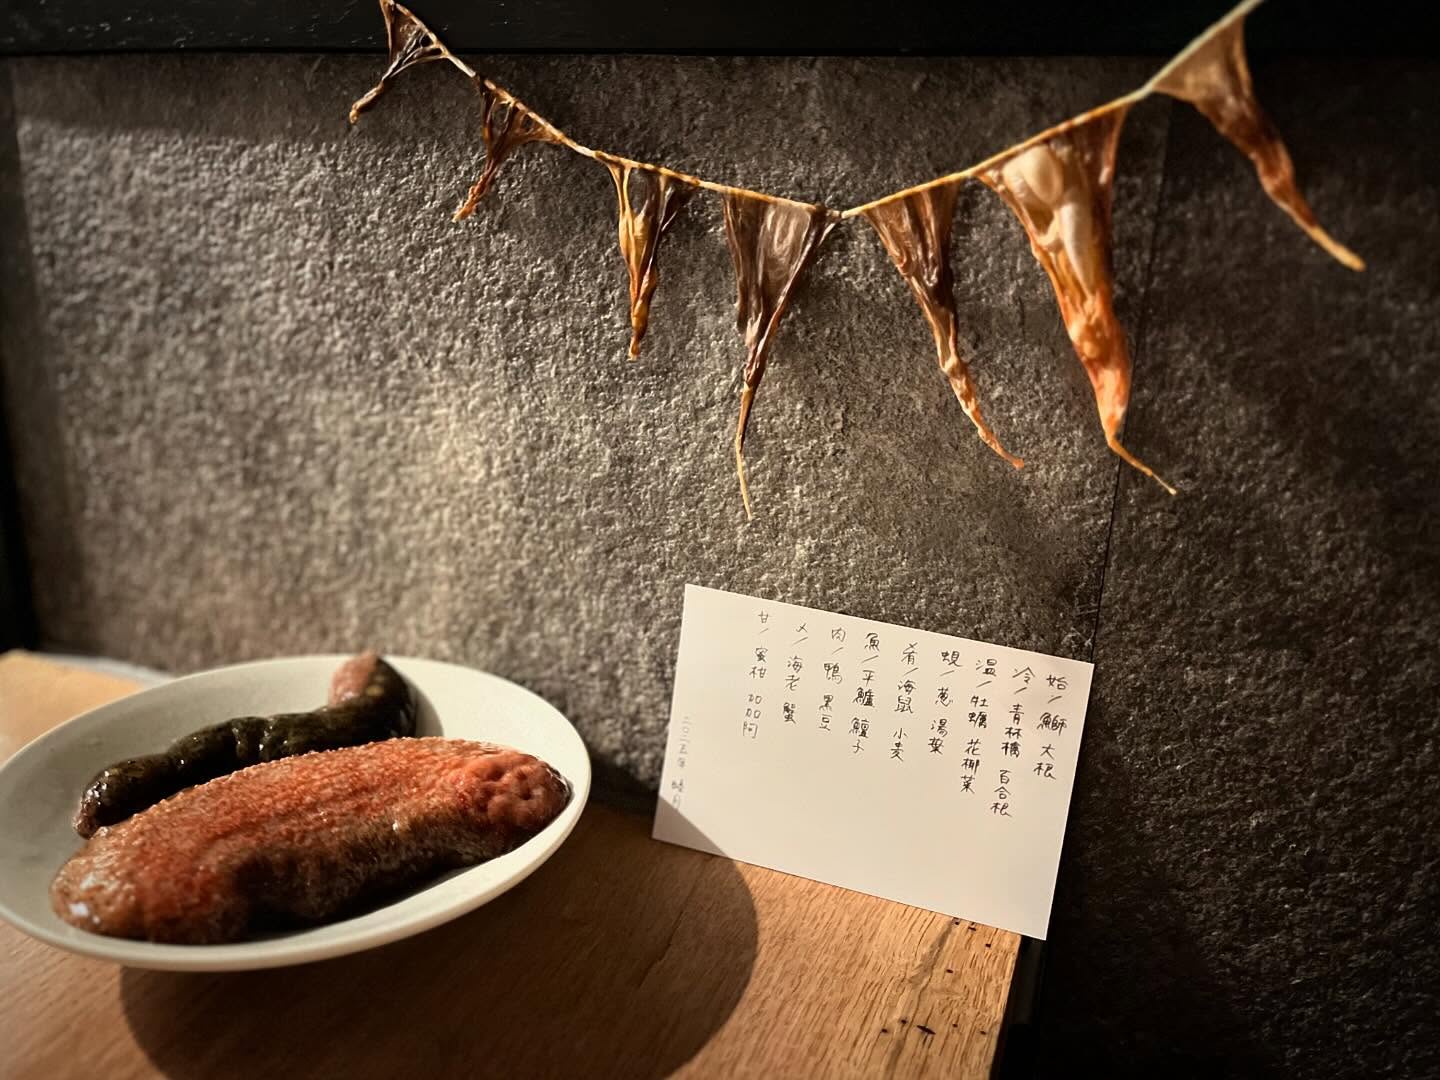 始/鰤 大根
冷/青林檎 百合根
温/牡蠣 花椰菜
蜆/葱 湯葉
肴/海鼠 小麦
魚/平鱸 鱣子
肉/鴨 黒豆
〆/海老 蟹
甘/蜜柑 加加阿
二〇二五年 睦月